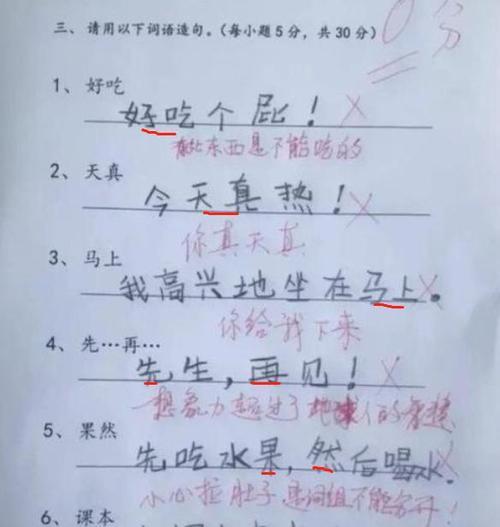 三、请用以下词语造句。（每小题5分，共30分）
0分
1、好吃
好吃个屁！
有些东西是不能吃的
2、天真
今天真热！
你真天真
3、马上
我高兴地坐在马上。
你给我下来
4、先…再…
先生，再见！
想象力超过了地球人的
5、果然
先吃水果，然后喝水
小心拉肚子 是词组不能分开！
6、课本